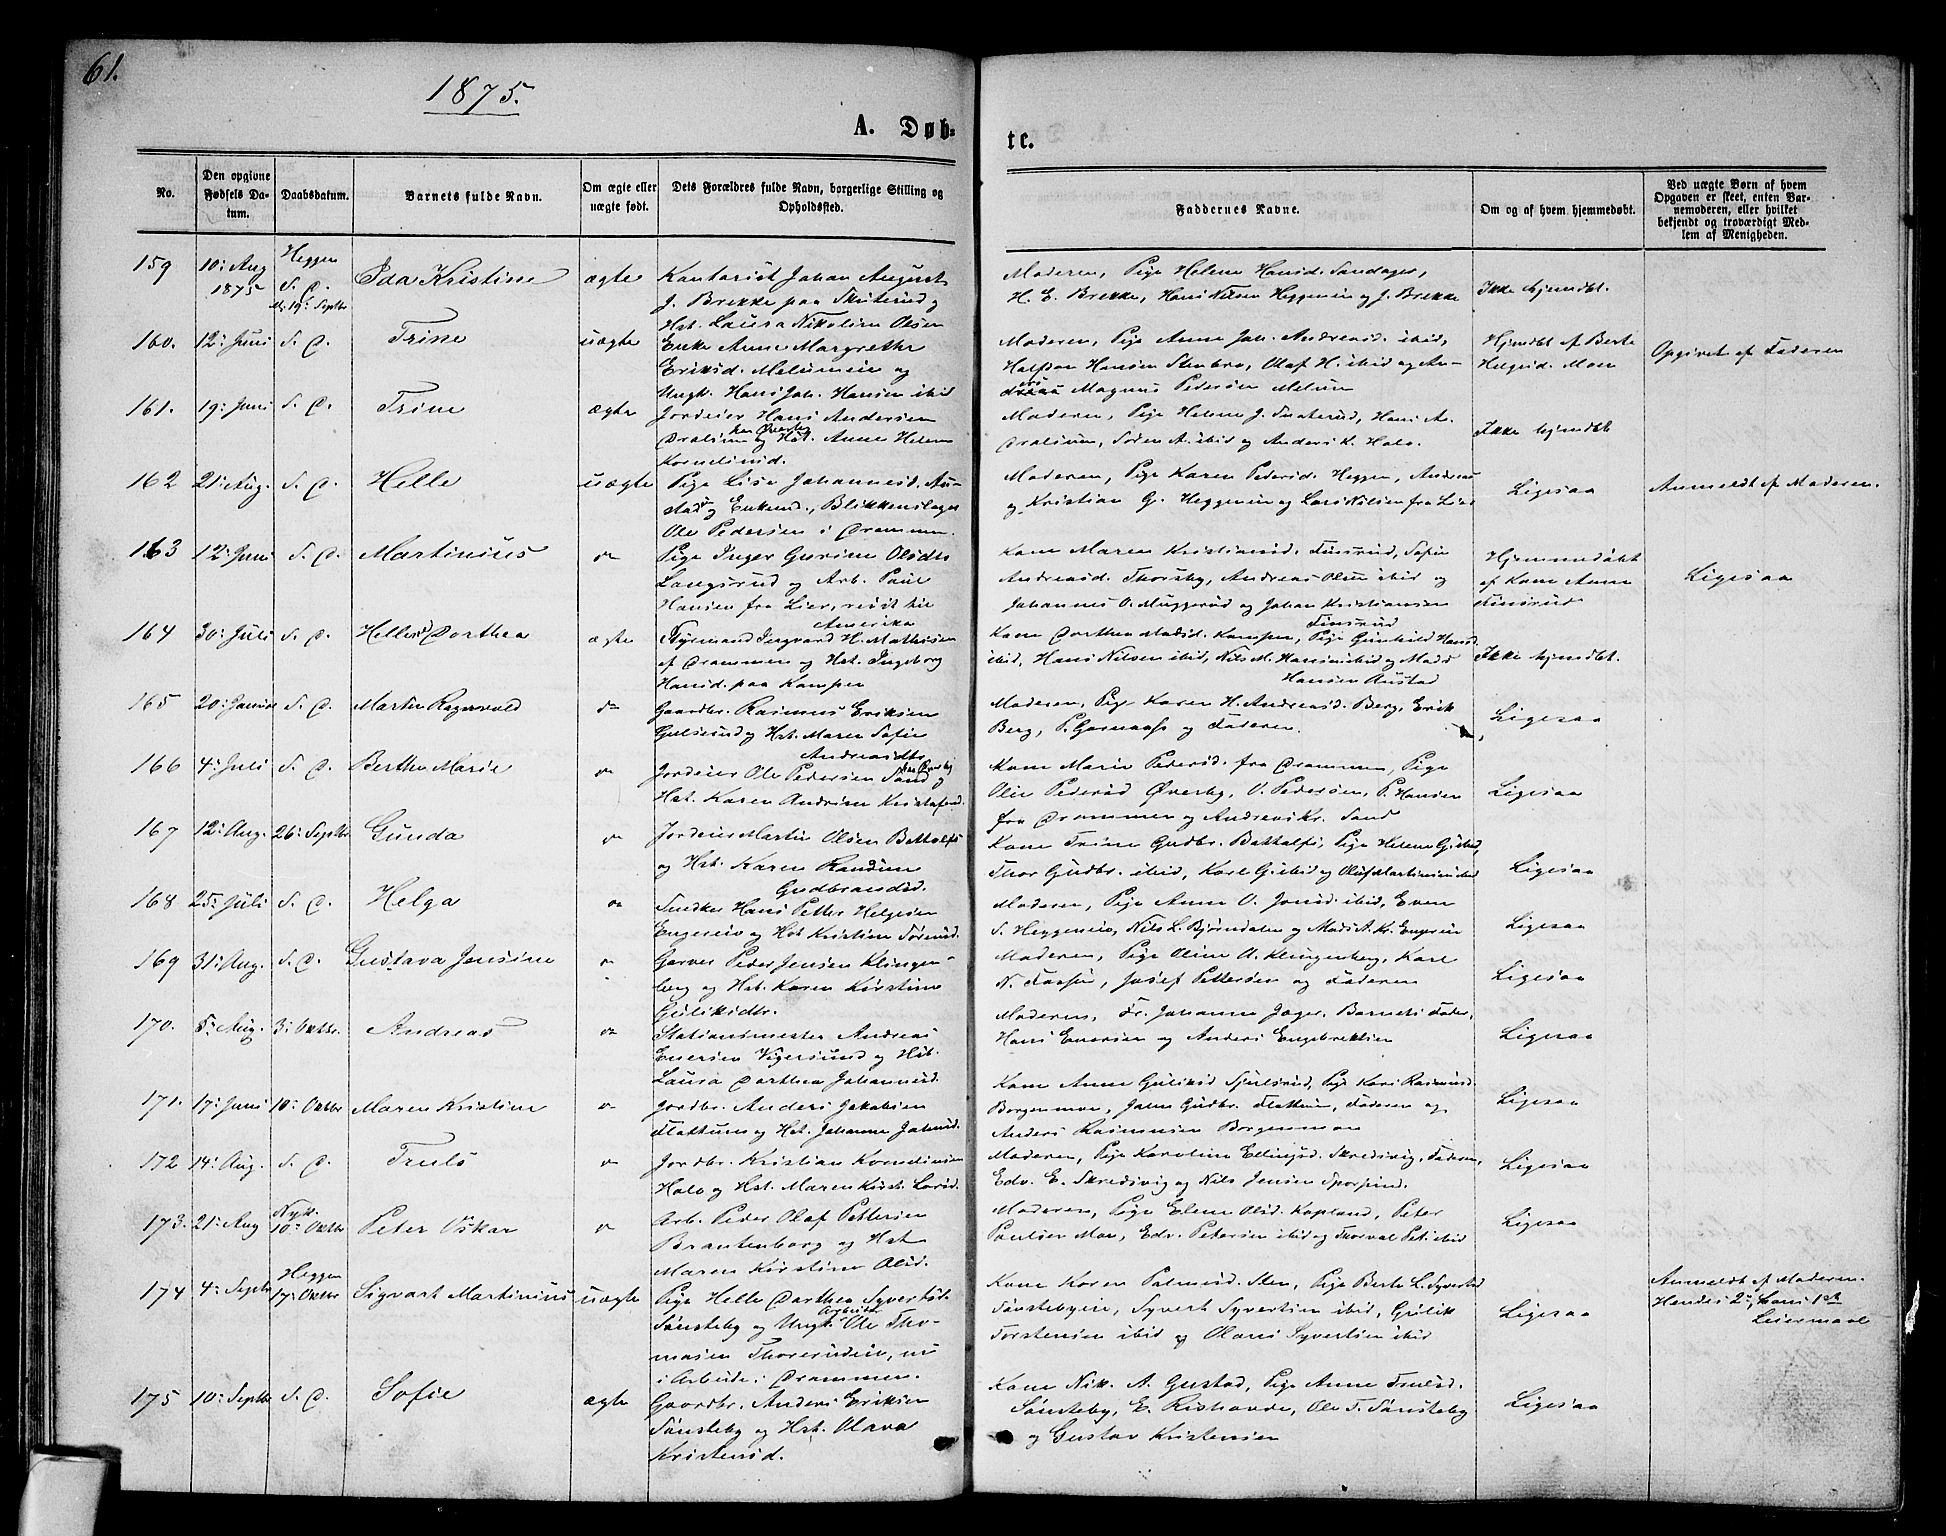 61.
1875.
A. Døb-
te.
No.
Den opgivne Fødsels Da-tum.
Daabsdatum.
Barnets fulde Navn.
Om ægte eller uægte født.
Dets Forældres fulde Navn, borgerlige Stilling og Opholdssted.
Faddernes Navne.
Om og af hvem hjemmedøbt.
Ved uægte Børn af hvem Opgaven er skeet, enten Bar-nemoderen, eller hvilket bekjendt og troværdigt Med-lem af Menigheden.
159 10: Aug 1875 Heggen S. D. 19: Septbr Ida Kristine ægte
Kontorist Johan August
J. Brekke paa Skuterud og
Hst. Laura Nikoline Olsen
Moderen, Pige Helene Hansd. Sandager,
H. E. Brekke, Hans Nilsen Heggeneie og J. Brekke
Ikke hjemdbt.
160. 12: Juni S. D. Trine uægte
Enke Anne Margrethe
Eriksd. Melumeie og
Ungk. Hans Joh. Hansen ibid
Moderen, Pige Anne Joh. Andreasd. ibid,
Halfson Hansen Stenbro, Olaf H. ibid og An-
Magnus Pedersen Melum
Hjemdbt af Berte
Helgesd. Moen
Opgivet af Faderen
161. 19: Juni S. D. Trine ægte
Jordeier Hans Andersen
Dralien og Hst. Anne Helene
Korneliusd.
Moderen, Pige Helene J. Hans A.
Dralien, Søren A. ibid og Anders K. Holo.
Ikke hjemdbt
162 21: Aug. S. D. Helle uægte
Pige Lise Johannesd. Au-
stad og Enkemd., Blikkenslager
Ole Pedersen i Drammen.
Moderen, Pige Karen Pedersd. Heggen, Andreas
og Kristian G. Heggeneie og Lars Nilsen fra Lier
Ligesaa
Anmeldt af Moderen.
163 12: Juni S. D. Martinius do
Pige Inger Gurine Olsdtr
Langsrud og Arb. Paul
Hansen fra Lier, reist til
Amerika
Kone Maren Kristiansd. Finsrud, Sofie
Andreasd. Thorsby, Andreas Olsen ibid og
Johannes O. Muggerud og Johan Kristiansen
Finsrud
Hjemmedøbt
af Kone Anne
Finsrud
Ligesaa
164 30: Juli S. D. Helle Dorthea ægte
Styrmand Ingvard H. Mathisen
af Drammen og Hst. Ingeborg
Hansd. paa Kampen
Kone Dorthea Madsd. Kampen, Pige Gunhild Hansd.
ibid, Hans Nilsen ibid, Nils M. Hansen ibid og Mads
Hansen Austad
Ikke hjemdbt.
165 20: Januar S. D. Martin Ragnvald do
Gaardbr. Rasmus Eriksen
Gulsrud og Hst. Maren Sofie
Andreasdtr.
Moderen, Pige Karen H. Andreasd. Berg, Erik
Berg, P. Gomnæss og Faderen.
Ligesaa
166 4: Juli S. D. Berthe Marie do
Jordeier Ole Pedersen Sand og
Hst. Karen Andrine Kristofersd.
Kone Marie Pedersd. fra Drammen, Pige
Olie Pedersd Øverby, O. Pedersen, P. Hansen
fra Drammen og Andreas Kr. Sand
Ligesaa
167 12: Aug. 26: Septbr Gunda do
Jordeier Martin Olsen Bottolfs
og Hst. Karen Randine
Gudbrandsd.
Kone Trine Gudbr. Bottolfs, Pige Helene G. ibid,
Thor Gudbr. ibid, Karl G. ibid og Oluf Martinius ibid
Ligesaa
168 25: Juli S. D. Helga do
Snedker Hans Petter Helgesen
Engereie og Hst Kristine Sørensd.
Moderen, Pige Anne O. Jonsd. ibid, Even
S. Heggeneie, Nils L. Bjørndalen og Mads A. Kr. Engereie
Ligesaa
169 31: Aug. S. D. Gustava Jensine do
Garver Peder Jensen Klingen-
berg og Hst. Karen Kirstine
Guliksdtr.
Moderen, Pige Oline A. Klingenberg, Karl
N. Josef Pettersen og Faderen
Ligesaa
170. 5: Aug. 3: Oktbr. Andreas do
Stationsmester Andreas
Enersen Vigersund og Hst.
Laura Dorthea Johannesd.
Moderen, Fr. Johanne Jæger, Barnets Fader,
Hans Enersen og Anders Engebrektsen
Ligesaa
171. 17: Juni 10: Oktbr Maren Kristine do
Jordbr. Anders Jakobsen
Flattum og Hst. Johanne Johnsd.
Kone Anne Guliksd Pige Kari Rasmusd.
Borgenmoe, John Gudbr. Flattum, Faderen og
Anders Rasmussen Borgenmoe
Ligesaa
172 14: Aug. S. D. Truls do
Jordbr. Kristian Korneliusen
Holo og Hst. Maren Kirst. Larsd.
Moderen, Pige Karoline Ellingsd. Skredsvig, Faderen,
Edv. E. Skredsvig og Nils Jensen
Ligesaa
173. 21: Aug Nyk. 10: Oktbr Peter Oskar do
Arb. Peder Olaf Pettersen
Brantenborg og Hst
Maren Kirstine Olsd.
Moderen, Pige Elene Olsd. Kopland, Peter
Paulsen Moe, Edv. Petersen ibid og Thorval Pet. ibid
Ligesaa
174 4: Septbr Heggen 17: Oktbr Sigvart Martinius uægte
Pige Helle Dorthea Syversd.
Sønsteby og Ungk. Arbeider Ole Tho-
masen Thorerudeie, nu
i Arbeide i Drammen.
Kone Karen Palmesd. Sten, Pige Berte L. Syversd
Sønstebyeie, Syvert Syvertsen ibid, Gulik
Torstensen ibid og Olaus Syvertsen ibid
Ligesaa
Anmeldt af Moderen.
Hendes 2:, hans 1ste
Leiermaal
175 10: Septbr S. D. Sofie ægte
Gaardbr. Anders Eriksen
Sønsteby og Hst. Olava
Kristensd.
Kone Nik. A. Gustad, Pige Anne Trulsd.
Sønsteby, E. Ole T. Sønsteby
og Gustav Kristensen
Ligesaa